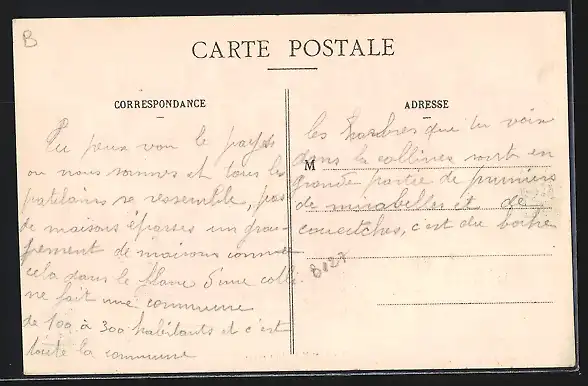 B
CARTE POSTALE
CORRESPONDANCE
Tu peux voir le payes
ou nous sommes et tous les
patelains se ressemble, pas
de maisons éparses un grou-
pement de maisons comme
cela dans le flanc d'une colli
ne fait une commune
de 100 à 300 habitants et c'est
toute la commune
ADRESSE
M
les harbres que tu vois
dans la collines sont en
grande partie de pruniers
de mirabelles et de
couetches, c'est du boche
8127